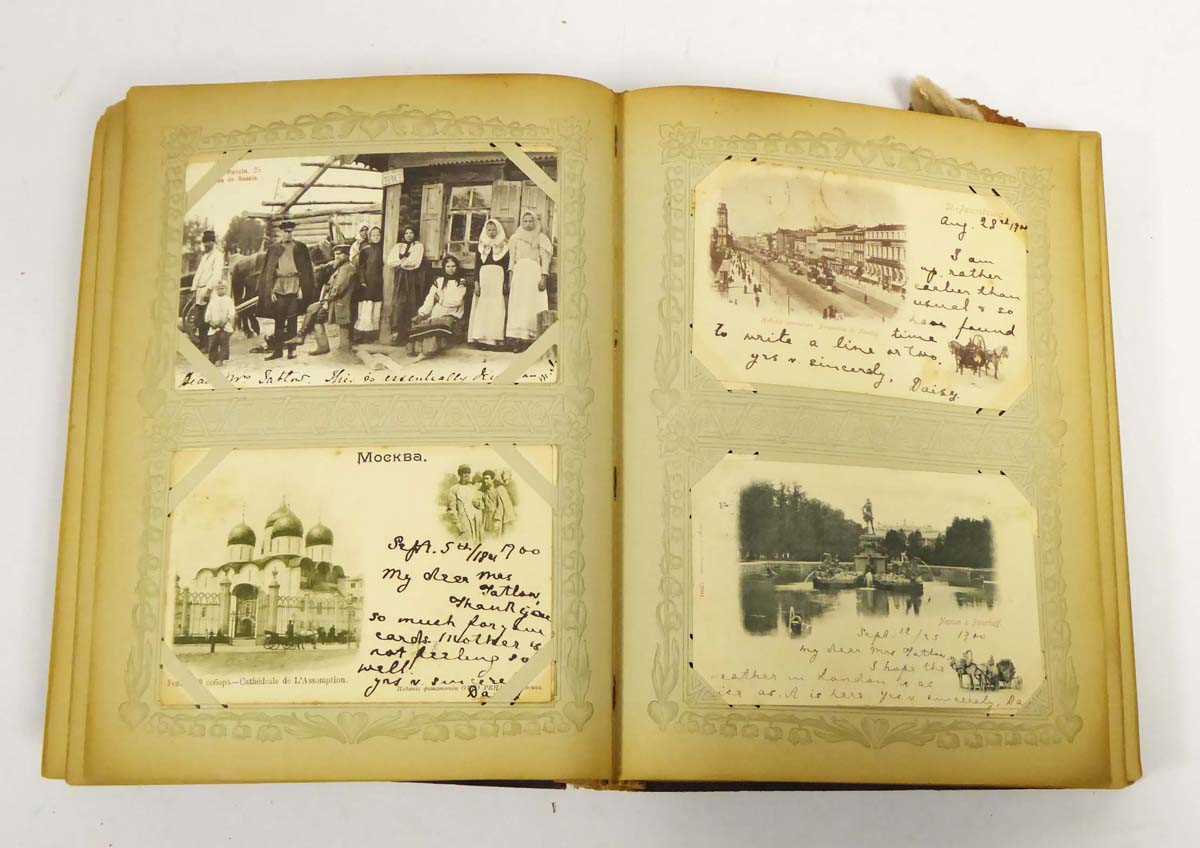 de Russie.
Dear Mrs Tatlow. This is essentially
Москва.
Sept. 5th/ 1900
My dear Mrs
Tatlow,
Thank you
so much for your
cards. Mother is
not feeling so
well.
yrs v. sincere
Da
соборъ.—Cathédrale de L'Assomption.
Aug. 28th 1900
I am
up rather
earlier than
usual & so
have found
time
to write a line or two.
yrs v. sincerely, Daisy.
Sept. 12/25 1900
My dear Mrs Tatlow,
I hope the
weather in London is as
nice as it is here. Yrs v. sincerely, Da